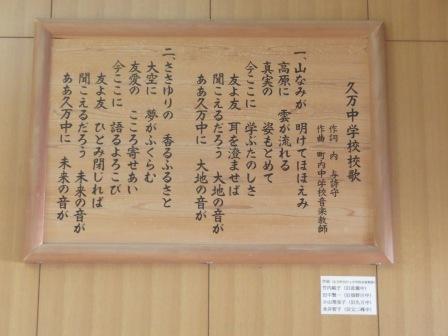 久万中学校校歌
作詞 内 与詩守
作曲 町内中学校音楽教師
一、山なみが 明けてほほえみ
高原に 雲が流れる
真実の 姿もとめて
今ここに 学ぶたのしさ
友よ友 耳を澄ませば
聞こえるだろう 大地の音が
ああ久万中に 大地の音が
二、ささゆりの 香るふるさと
大空に 夢がふくらむ
友愛の こころ寄せあい
今ここに 語るよろこび
友よ友 ひとみ閉じれば
聞こえるだろう 未来の音が
ああ久万中に 未来の音が